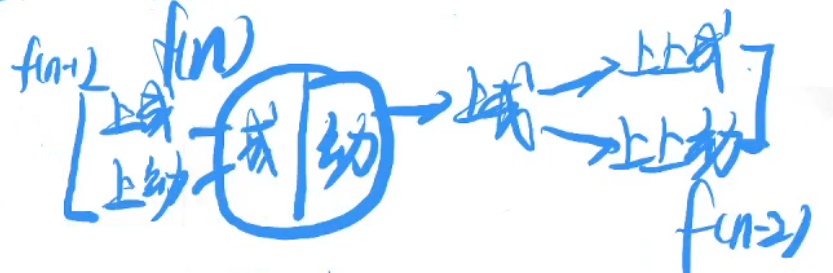 f(n-1) f(n)
上成 上幼
成 幼 → 上成 → 上上成
上上幼
f(n-2)